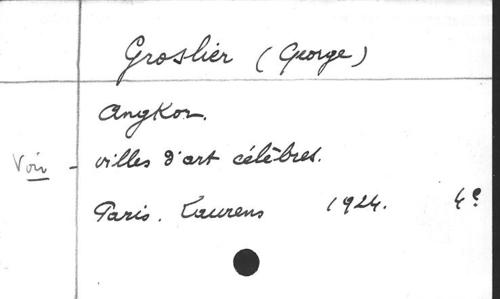 Groslier (George)
Angkor.
Voir - villes d'art célèbres.
Paris. Laurens 1924. 4º